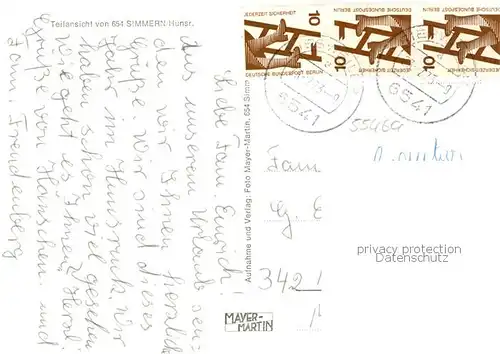 Teilansicht von 654 SIMMERN/Hunsr.
Liebe Fam. Emrich!
Aus unserem Urlaub sen-
den wir Ihnen herzliche
Grüße. Wir sind dieses
Jahr im Hunsrück. Wir
haben schon viel gesehen
Wie geht es Ihnen?
Grüße von Hänschen und
Fam. Freudenberg
Aufnahme und Verlag: Foto Mayer-Martin, 654 Simm
MAYER-
MARTIN
JEDERZEIT SICHERHEIT
10
DEUTSCHE BUNDESPOST BERLIN
JEDERZEIT SICHERHEIT
10
DEUTSCHE BUNDESPOST BERLIN
JEDERZEIT SICHERHEIT
10
DEUTSCHE BUNDESPOST BERLIN
6541
6541
55464
Fam
G. E
342
privacy protection
Datenschutz